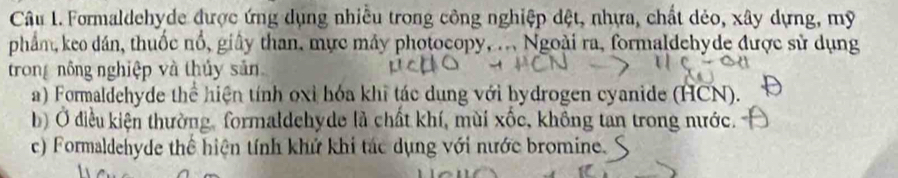 Câu 1. Formaldehyde được ứng dụng nhiều trong công nghiệp dệt, nhựa, chất dẻo, xây dựng, mỹ
phẩm, keo dán, thuốc nổ, giấy than, mực máy photocopy, … Ngoài ra, formaldehyde được sử dụng
trong nông nghiệp và thủy sản.
HCHO + HCN →
a) Formaldehyde thể hiện tính oxi hóa khi tác dụng với hydrogen cyanide (HCN). Đ
b) Ở điều kiện thường, formaldehyde là chất khí, mùi xốc, không tan trong nước. Đ
c) Formaldehyde thể hiện tính khử khi tác dụng với nước bromine. S